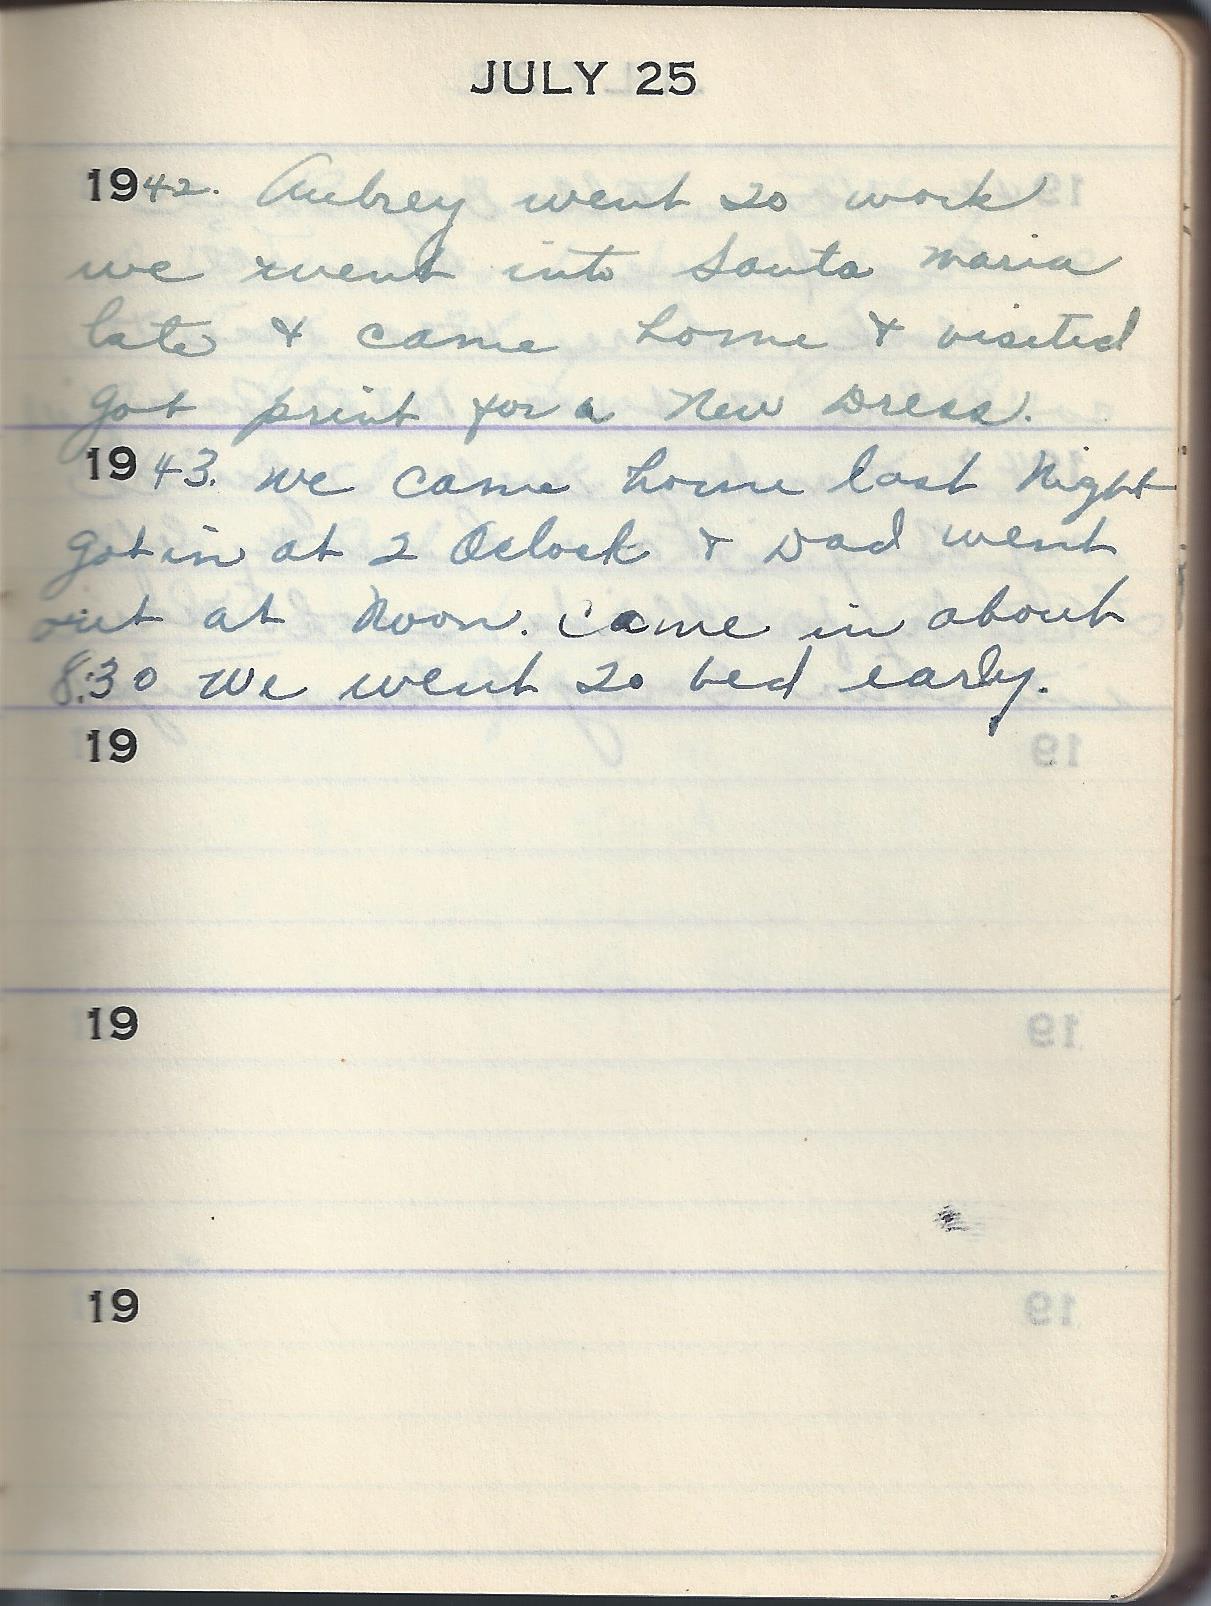 JULY 25
1942. Aubrey went to work
we went into Santa Maria
late & came home & visited
got print for a New Dress.
1943. We came home last Night
got in at 2 Oclock & Dad went
out at Noon. Came in about
8:30 We went to bed early.
19
19
19